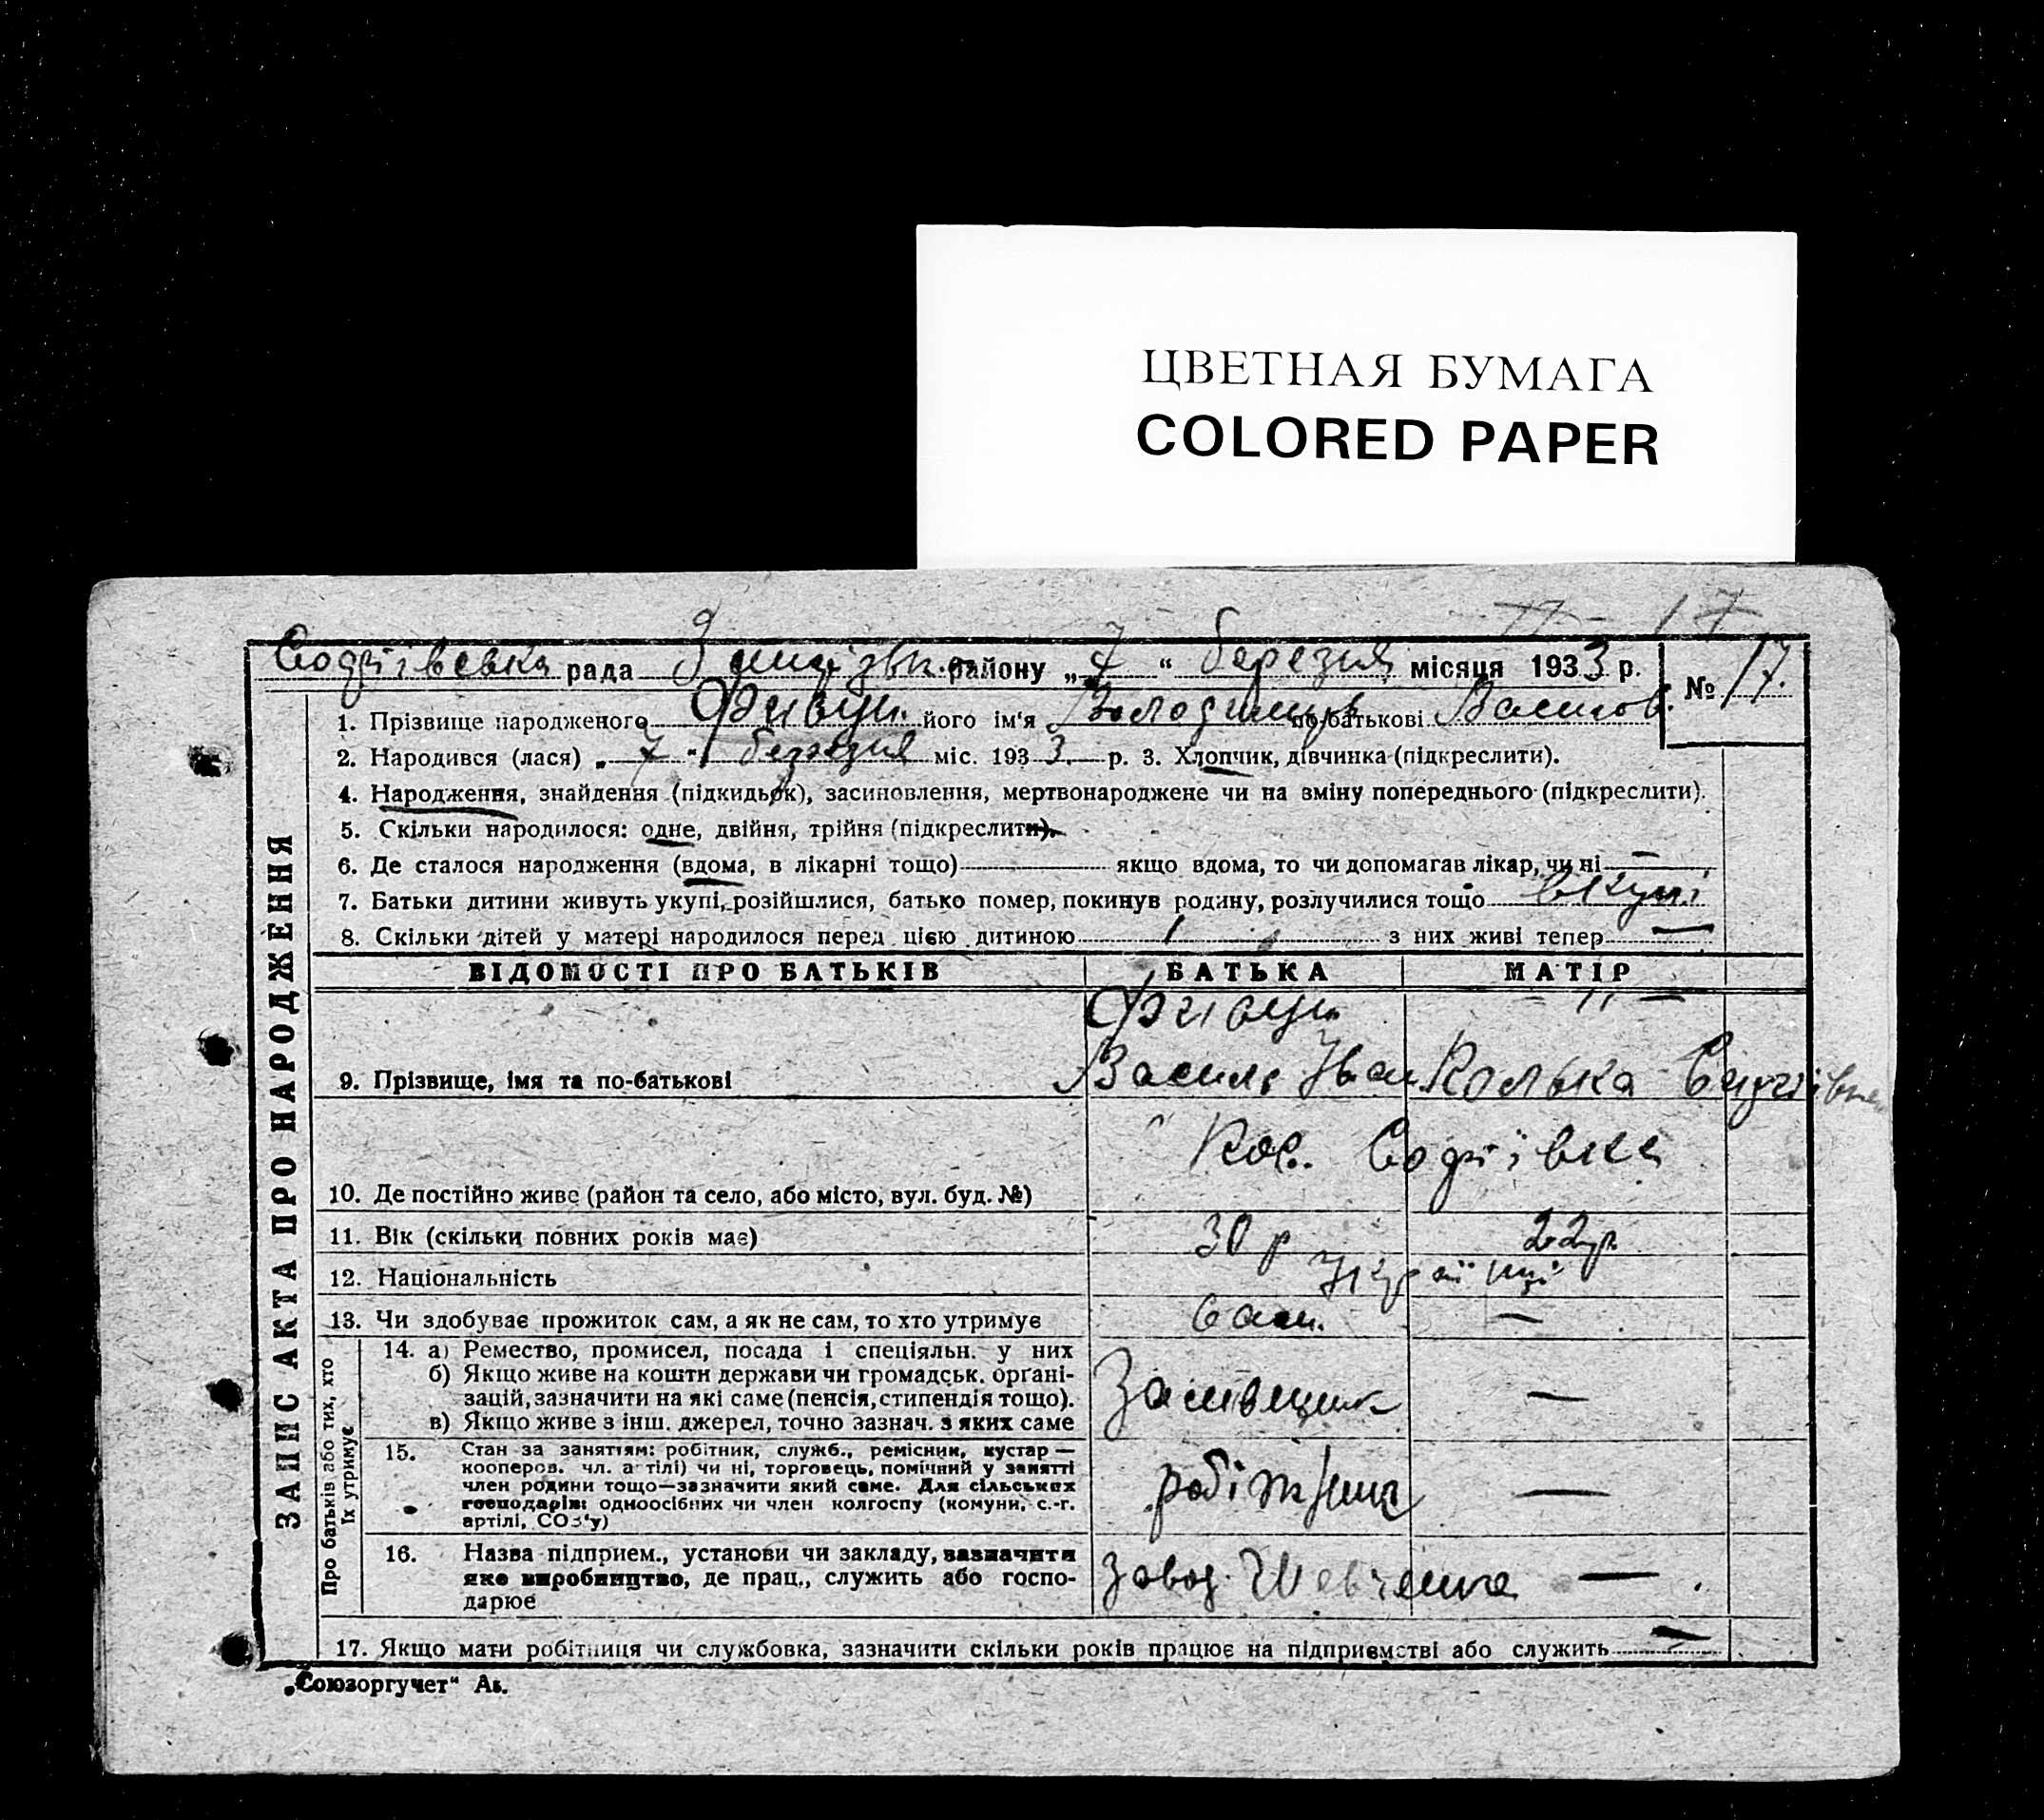 ЦВЕТНАЯ БУМАГА
COLORED PAPER
17
Софіївська рада району „7“ березня місяця 1933 р. № 17.
1. Прізвище народженого його ім'я Володимир по батькові Васильов.
2. Народився (лася) „7“ березня міс. 1933. р. 3. Хлопчик, дівчинка (підкреслити).
4. Народження, знайдення (підкидьок), засиновлення, мертвонароджене чи на зміну попереднього (підкреслити).
5. Скільки народилося: одне, двійня, трійня (підкреслити).
6. Де сталося народження (вдома, в лікарні тощо) якщо вдома, то чи допомагав лікар, чи ні —
7. Батьки дитини живуть укупі, розійшлися, батько помер, покинув родину, розлучилися тощо вкупі
8. Скільки дітей у матері народилося перед цією дитиною 1 з них живі тепер —
ЗАПИС АКТА ПРО НАРОДЖЕННЯ
ВІДОМОСТІ ПРО БАТЬКІВ БАТЬКА МАТІР
— " —
9. Прізвище, імя та по-батькові Василь Іван
10. Де постійно живе (район та село, або місто, вул. буд. №) Кол. Софіївка
11. Вік (скільки повних років має) 30 р 22 р.
12. Національність Українці
13. Чи здобуває прожиток сам, а як не сам, то хто утримує сам. —
Про батьків або тих, хто їх утримує
14. а) Ремество, промисел, посада і спеціяльн. у них
б) Якщо живе на кошти держави чи громадськ. органі-
зацій, зазначити на які саме (пенсія, стипендія тощо). —
в) Якщо живе з інш. джерел, точно зазнач. з яких саме
15. Стан за заняттям: робітник, служб., ремісник, кустар —
кооперов. чл. артілі) чи ні, торговець, помічний у занятті
член родини тощо—зазначити який саме. Для сільських робітник —
господарів: одноосібних чи член колгоспу (комуни, с.-г.
артілі, СОЗ'у)
16. Назва підприєм., установи чи закладу, зазначити
яке виробництво, де прац., служить або госпо- завод. Шевченка —
дарює
17. Якщо мати робітниця чи службовка, зазначити скільки років працює на підприємстві або служить —
„Союзоргучет“